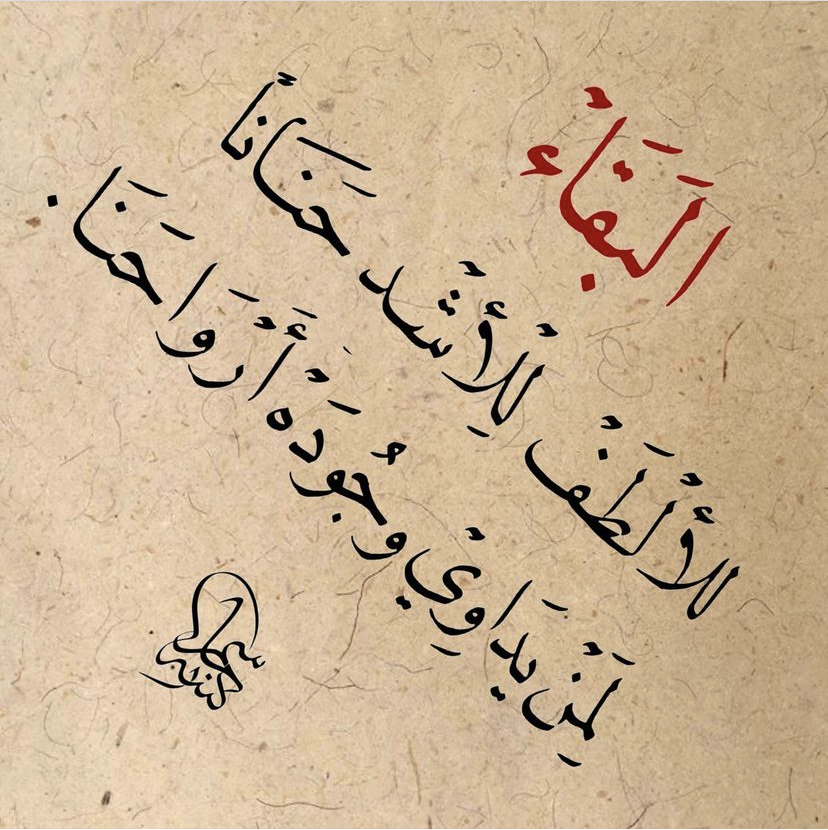 البَقَاءْ
للأَلْطَفْ لِلْأَشْد حَنَاناً
لِمَنْ يدَاوِيْ وجُودَهْ أَرْوَاحنَا.